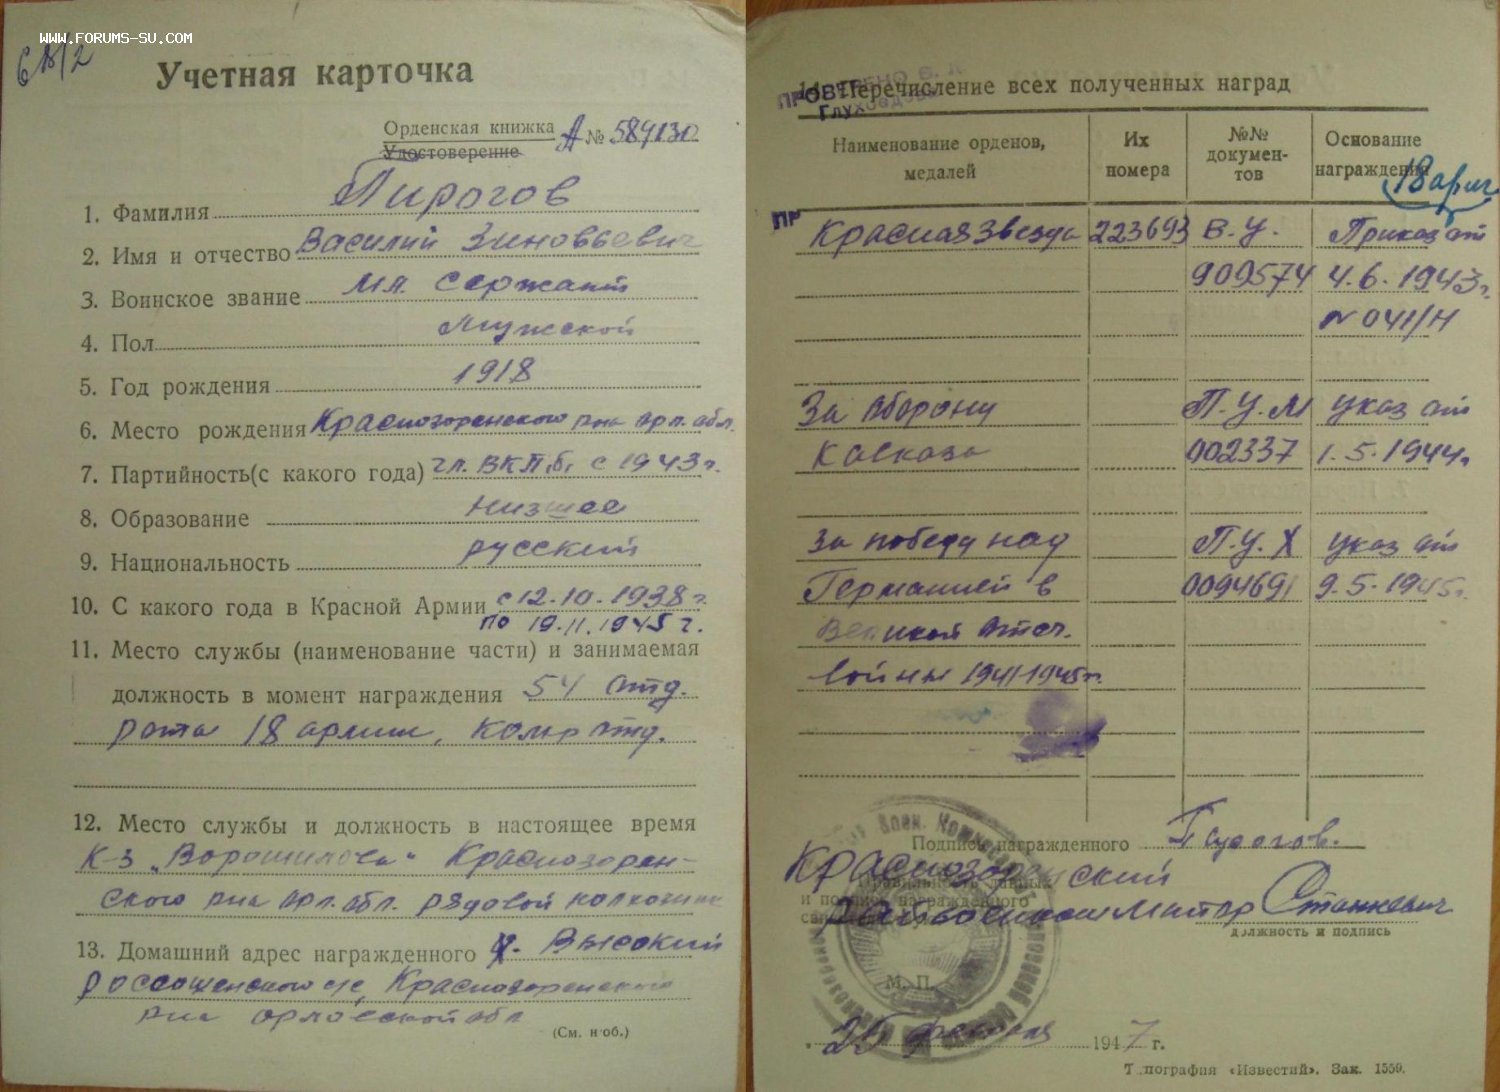 WWW.FORUMS-SU.COM
Учетная карточка
Орденская книжка А № 584130
Удостоверение
1. Фамилия Пирогов
2. Имя и отчество Василий Зиновьевич
3. Воинское звание мл. сержант
4. Пол мужской
5. Год рождения 1918
6. Место рождения Краснозоренского р-на Орл. обл.
7. Партийность(с какого года) чл. ВКП.б. с 1943 г.
8. Образование низшее
9. Национальность русский
10. С какого года в Красной Армии с 12.10.1938 г.
по 19.11.1945 г.
11. Место службы (наименование части) и занимаемая
должность в момент награждения 54 отд.
рота 18 армии, ком-р отд.
12. Место службы и должность в настоящее время
к-з „Ворошилова" Краснозорен-
ского р-на Орл. обл. рядовой колхозник
13. Домашний адрес награжденного д. Высокий
Россошенского с/с, Краснозоренского
р-на Орловской обл
(См. н об.)
ПРОВЕРЕНО
14. Перечисление всех полученных наград
Наименование орденов, медалей
Их номера
№№ докумен-тов
Основание награждения
18 арм
ПР
Красная Звезда 223693 В.У. Приказ от
909574 4.6.1943г.
№ 041/Н
За оборону П.У.М указ от
Кавказа 002337 1.5.1944г
За победу над П.У.Х указ от
Германией в 0094691 9.5.1945г.
Великой Отеч.
войны 1941-1945 г.
Подпись награжденного Пирогов.
Краснозоренский
Правильность данных
и подпись награжденного
райвоенком Майор Станкевич
должность и подпись
М. П.
25 февраля 1947 г.
Типография «Известий». Зак. 1559.